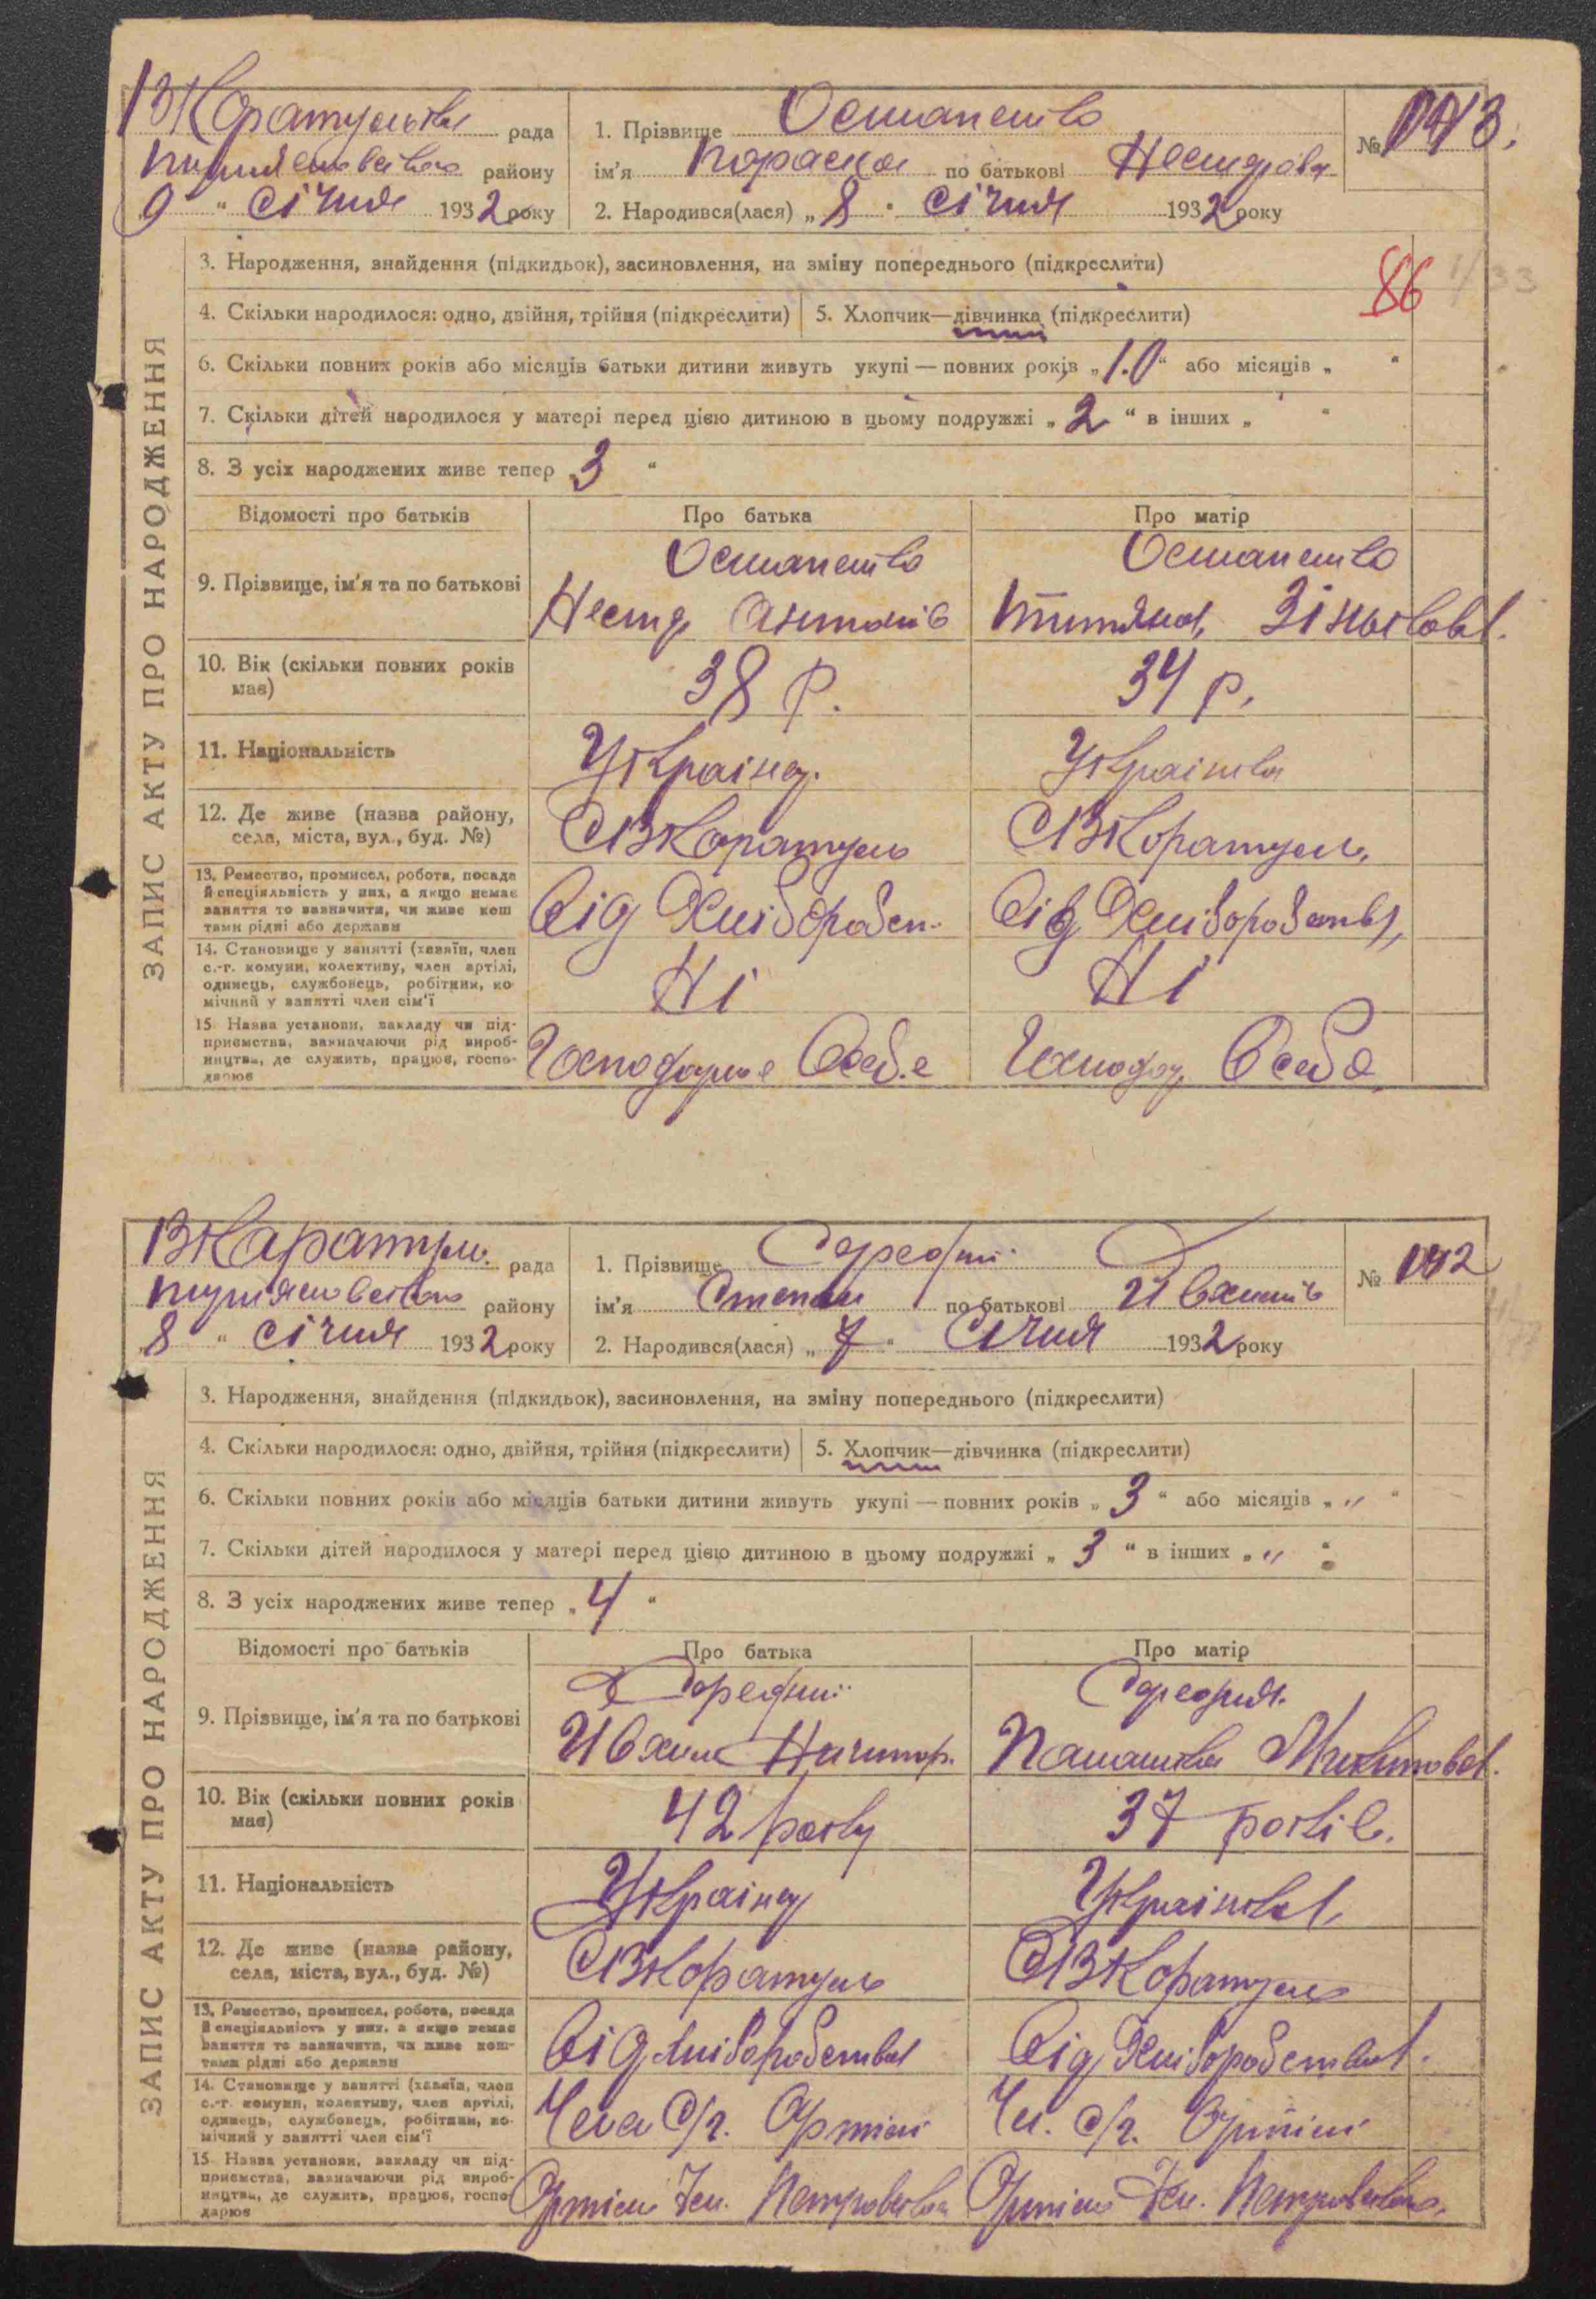 ЗАПИС АКТУ ПРО НАРОДЖЕННЯ
рада
району
9 " січня 1932 року
1. Прізвище Остапенко
ім'я Параска по батькові
2. Народився(лася) „ 8 " січня 1932 року
№
3. Народження, знайдення (підкидьок), засиновлення, на зміну попереднього (підкреслити)
86
4. Скільки народилося: одно, двійня, трійня (підкреслити)
5. Хлопчик—дівчинка (підкреслити)
6. Скільки повних років або місяців батьки дитини живуть укупі — повних років „ 10 " або місяців „ "
7. Скільки дітей народилося у матері перед цією дитиною в цьому подружжі „ 2 " в інших „ "
8. З усіх народжених живе тепер „ 3 "
Відомості про батьків
Про батька
Про матір
9. Прізвище, ім'я та по батькові
Остапенко
Нестер Антонів
Остапенко
10. Вік (скільки повних років має)
38 р.
34 р.
11. Національність
Українец
Українка
12. Де живе (назва району, села, міста, вул., буд. №)
13. Ремество, промисел, робота, посада й спеціяльність у них, а якщо немає заняття то зазначити, чи живе коштами рідні або держави
Від Хліборобст.
Від Хліборобства
14. Становище у занятті (хазяїн, член с.-г. комуни, колективу, член артілі, одинець, службовець, робітник, помічний у занятті член сім'ї
Ні
Ні
15. Назва установи, закладу чи підприємства, зазначаючи рід виробництва, де служить, працює, господарює
Господарює в себе
Господар в себе
ЗАПИС АКТУ ПРО НАРОДЖЕННЯ
рада
району
8 " січня 1932 року
1. Прізвище
ім'я Степан по батькові
2. Народився(лася) „ 7 " Січня 1932 року
№
3. Народження, знайдення (підкидьок), засиновлення, на зміну попереднього (підкреслити)
4. Скільки народилося: одно, двійня, трійня (підкреслити)
5. Хлопчик—дівчинка (підкреслити)
6. Скільки повних років або місяців батьки дитини живуть укупі — повних років „ 3 " або місяців „ " "
7. Скільки дітей народилося у матері перед цією дитиною в цьому подружжі „ 3 " в інших „ " "
8. З усіх народжених живе тепер „ 4 "
Відомості про батьків
Про батька
Про матір
9. Прізвище, ім'я та по батькові
Середній
Середня
10. Вік (скільки повних років має)
42 року
37 років.
11. Національність
Українец
Українка
12. Де живе (назва району, села, міста, вул., буд. №)
13. Ремество, промисел, робота, посада й спеціяльність у них, а якщо немає заняття то зазначити, чи живе коштами рідні або держави
Від хліборобства
Від Хліборобства
14. Становище у занятті (хазяїн, член с.-г. комуни, колективу, член артілі, одинець, службовець, робітник, помічний у занятті член сім'ї
Член С/г. Артілі
Чл. с/г. Артілі
15. Назва установи, закладу чи підприємства, зазначаючи рід виробництва, де служить, працює, господарює
Петровського
Петровського